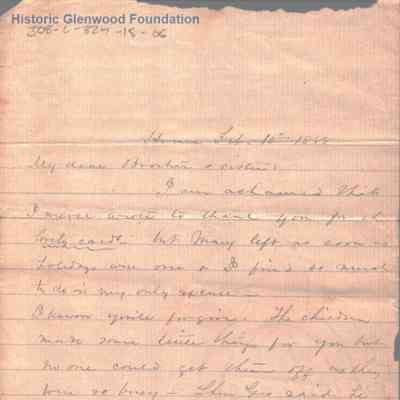 Historic Glenwood Foundation
Home Feb. 10th
My dear Brother & sister:
I am ashamed that
I never wrote to thank you for
lovely cards but Mary left as soon as
holidays were over & I find so much
to do is my only excuse —
I know you'll forgive. The children
made some little things for you but
no one could get them off as they
were so busy — Geo said he